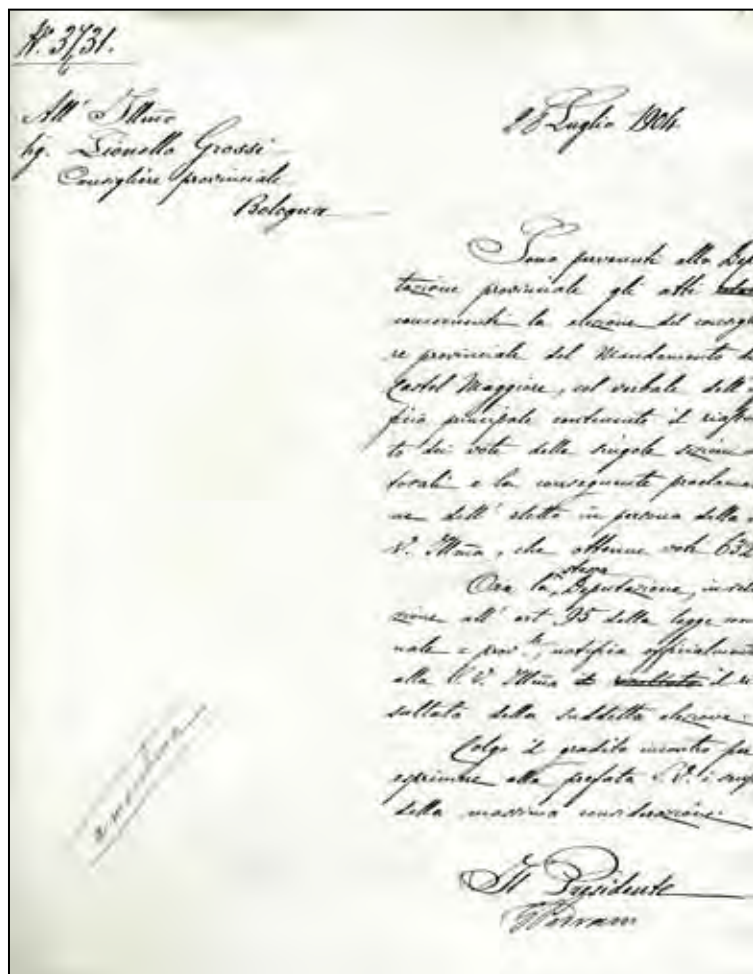 N.° 3731.
28 Luglio 1904
All' Illmo
Sig. Lionello Grossi
Consigliere provinciale
Bologna
Sono pervenuti alla Depu
tazione provinciale gli atti
concernenti la elezione del consiglie
re provinciale del Mandamento di
Castel Maggiore, col verbale dell'
ficio principale contenente il riassun
to dei voti delle singole sezioni e
torali e la conseguente proclama
ne dell' eletto in persona della
V. Illma, che ottenne voti 632
Ora la stessa Deputazione, in rela
zione all' art 95 della legge comu
nale e prov.le, notifica ufficialmente
alla S. V. Illma il risultato il ri
sultato della suddetta elezione.
Colgo il gradito incontro per
esprimere alla prefata S. V. i sensi
della massima considerazione.
Il Presidente